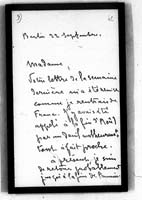 Berlin 22 septembre.
Madame,
Votre lettre de la semaine
dernière m'a
comme je rentrais de
France. J'y avais été
appelé à la fin d'Août
par un deuil
tout à fait proche.
à présent, je suis
de retour probablement
jusqu'à la fin de l'année